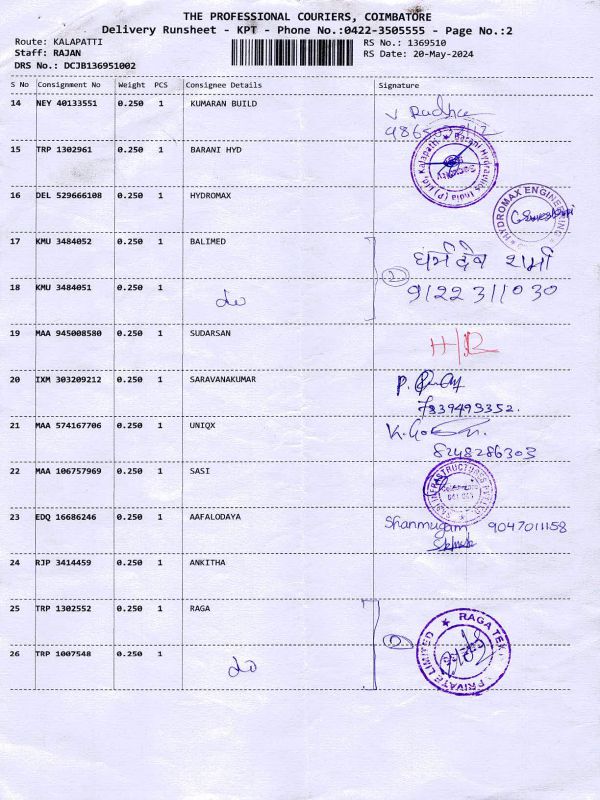 THE PROFESSIONAL COURIERS, COIMBATORE
Delivery Runsheet - KPT - Phone No.:0422-3505555 - Page No.:2
Route: KALAPATTI RS No.: 1369510
Staff: RAJAN RS Date: 20-May-2024
DRS No.: DCJB136951002
S No Consignment No Weight PCS Consignee Details Signature
14 NEY 40133551 0.250 1 KUMARAN BUILD V Radha
15 TRP 1302961 0.250 1 BARANI HYD
Kalapatti Barani Hydraulics India (P) Ltd. Security
16 DEL 529666108 0.250 1 HYDROMAX
HYDROMAX ENGINEERING
17 KMU 3484052 0.250 1 BALIMED धर्म देव शर्मा
18 KMU 3484051 0.250 1 do 2 9122311030
19 MAA 945008580 0.250 1 SUDARSAN H/R
20 IXM 303209212 0.250 1 SARAVANAKUMAR P.
7339495352.
21 MAA 574167706 0.250 1 UNIQX K.
8248286303
22 MAA 106757969 0.250 1 SASI
INFRASTRUCTURES
23 EDQ 16686246 0.250 1 AAFALODAYA Shanmugam 9047011158
24 RJP 3414459 0.250 1 ANKITHA
25 TRP 1302552 0.250 1 RAGA
RAGA TEX PRIVATE LIMITED
26 TRP 1007548 0.250 1 do